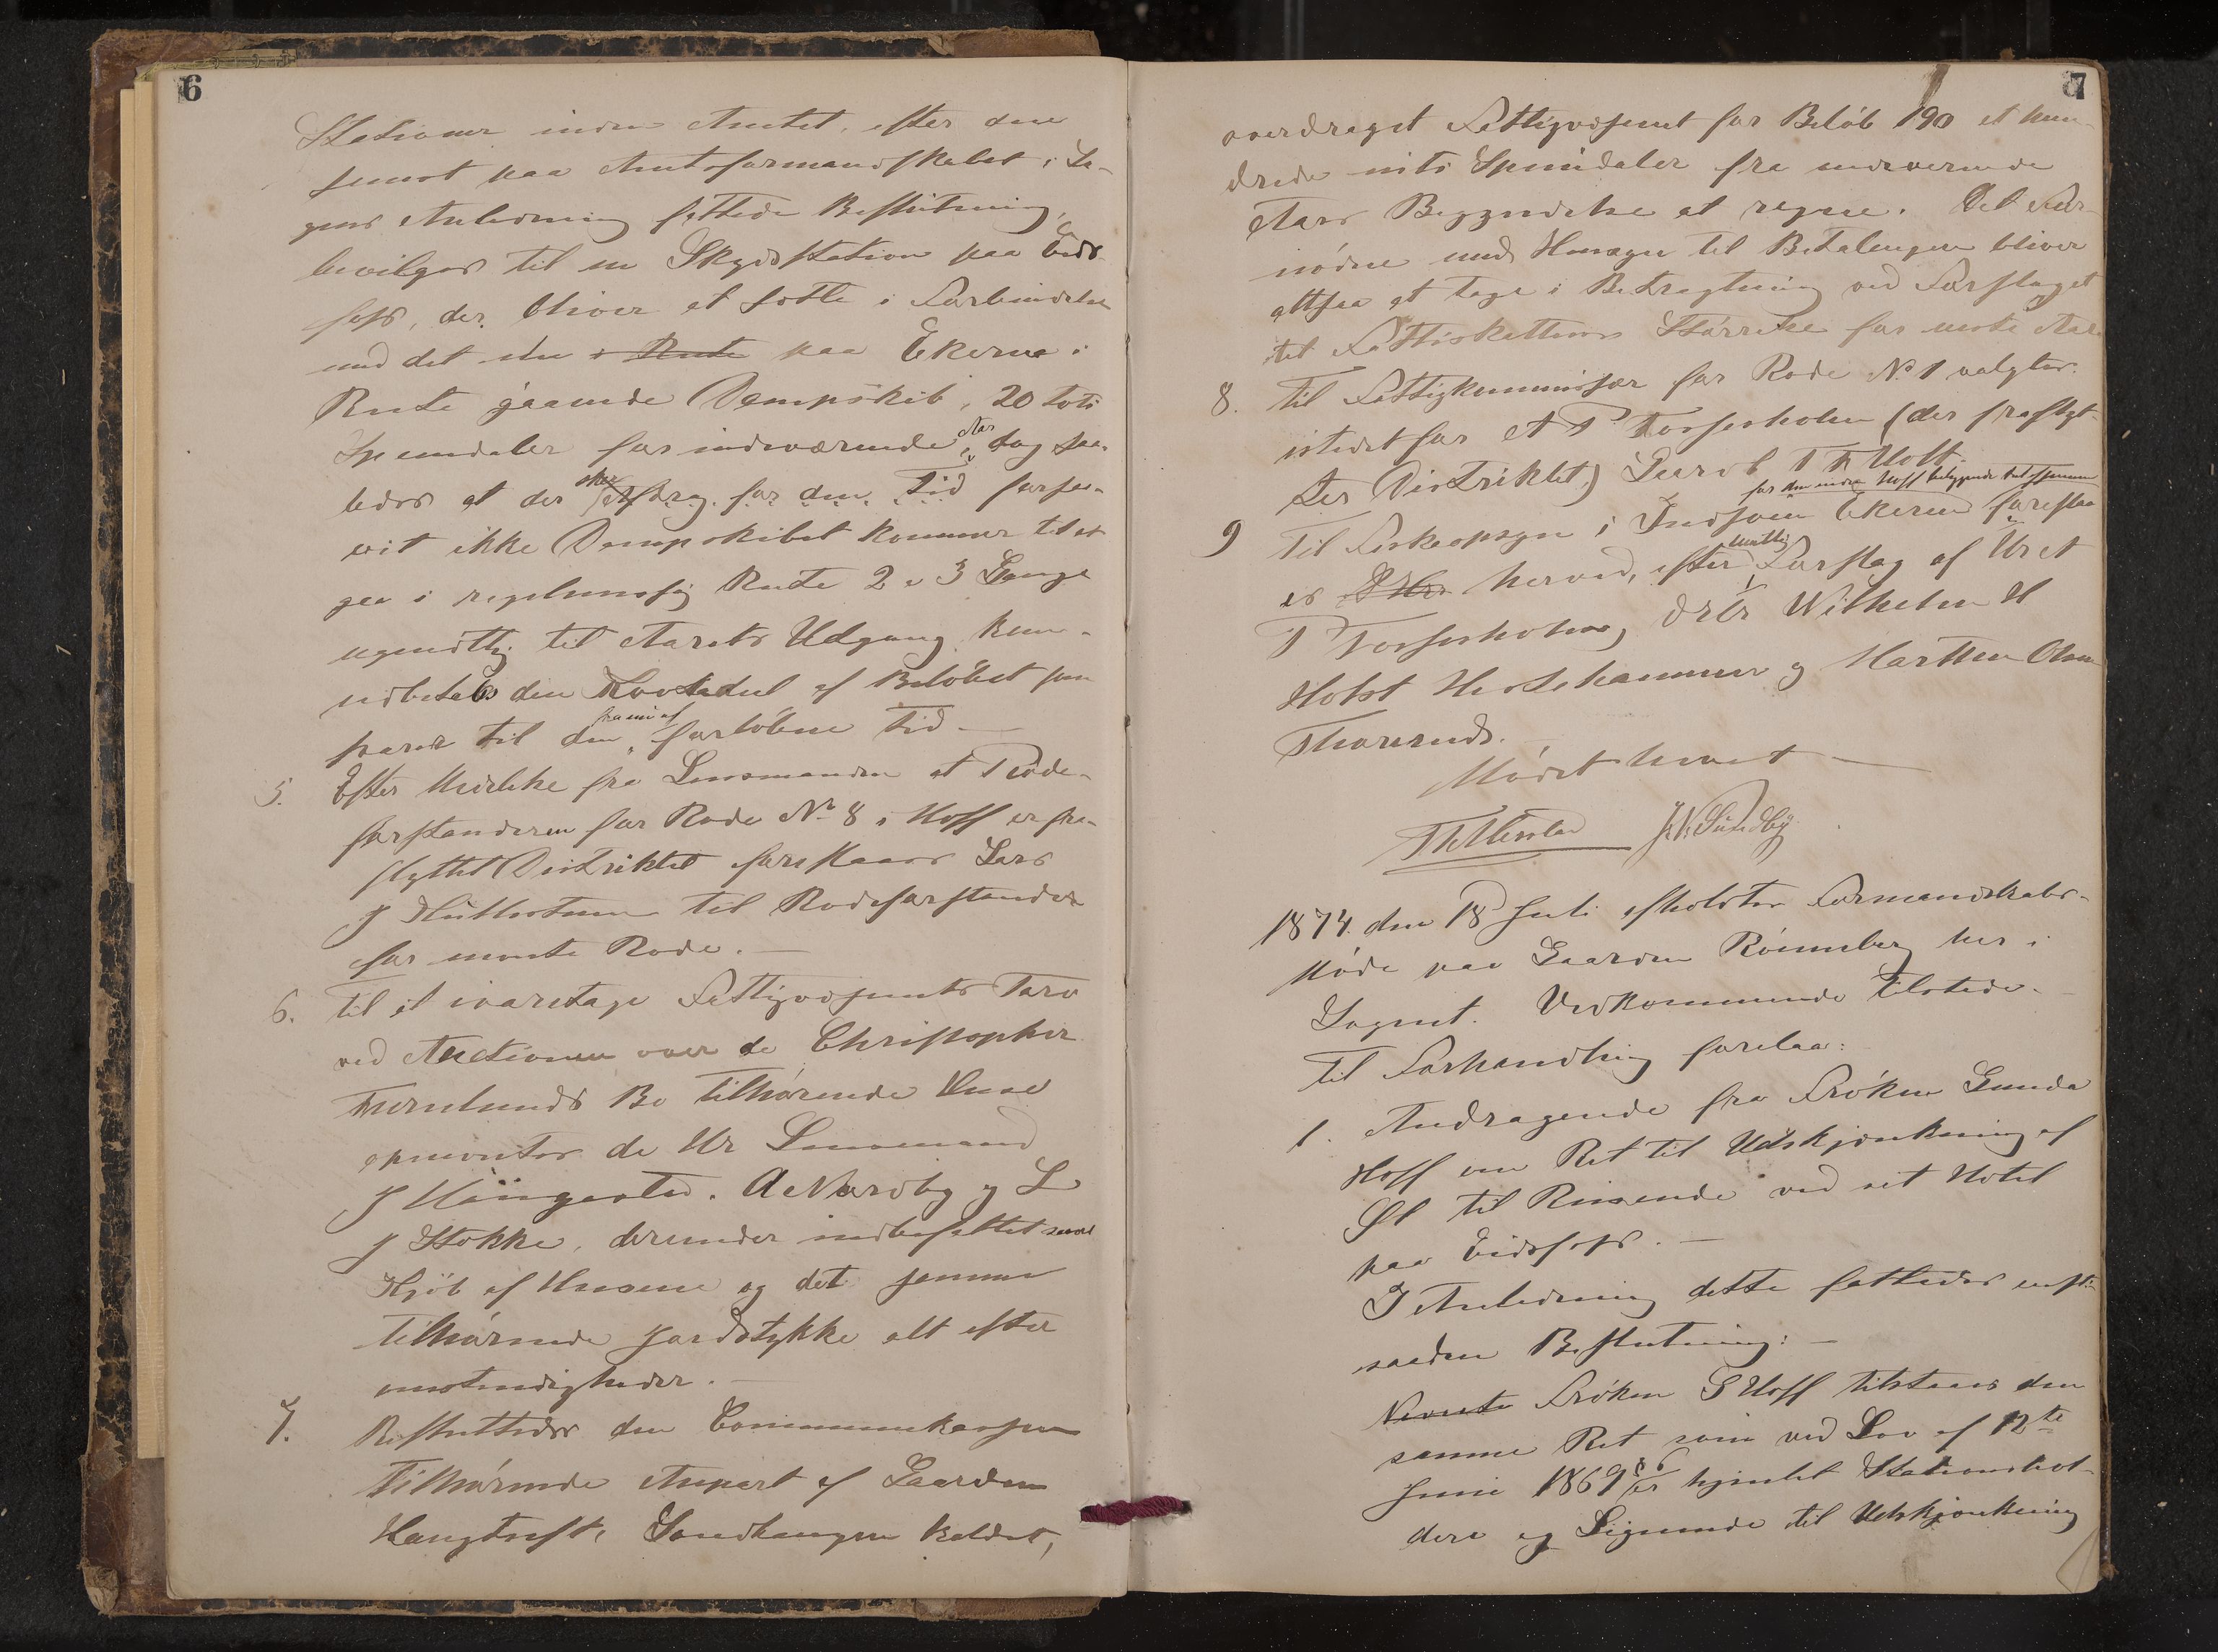 6
Stationer inden Amtet, efter den
senest paa Amtsformandskabet i Sa-
gens Anledning fattede Beslutning,
bevilges til en Skydsstation paa Eids
foss, der bliver at sætte i Forbindelse
med det nu i Rute paa Ekeren i
Rute gaaende Dampskib, 20 toti
Speendaler for indeværende Aar, dog saa-
ledes at der sker Afdrag for den Tid forsaa-
vit ikke Dampskibet kommer til at
gaa i regelmæssig Rute 2 a 3 Gange
ugentlig til Aarets Udgang kun
udbetales den Kvotadel af Beløbet som
svarer til den fra nu af forløbne Tid. —
5. Efter Meddelelse fra Lensmanden at Rode-
forstanderen for Rode No 8 i Hoff er fra-
flyttet Distriktet foreslaaes Lars
J Hullestuen til Rodeforstander
for nævnte Rode. —
6. Til at ivaretage Fattigvæsenets Tarv
ved Auctionen over de Christopher
Bo tilhørende Huse
opnævntes de Hr Lensmand
J A Nordby og L
J Stokke, derunder indbefattet saavel
Kjøb af Husene og det samme
tilhørende Jordstykke alt efter
omstændigheder. —
7. Besluttedes den Communekassen
tilhørende Anpart af Gaarden
Sandhaugen kaldet,
7
overdraget Fattigvæsenet for Beløb 190 et hun-
drede niti Speindaler fra indeværende
Aars Begyndelse at regne. Det For-
nødne med Hensyn til Betalingen bliver
altsaa at tage i Betragtning ved Forslaget
til Fattigskattens Størrelse for næste Aar
8. Til Fattigkommissær for Rode No 1 valgtes
istedetfor A P Fossesholm (der fraflyt-
ter Distriktet) T Hoff
9 Til Fiskeopsyn i Indsøen Ekeren for den under Hoff beliggende Del foreslaa
es herved, efter mundtlig Forslag af Hr A
P Fossesholm, Wilhelm H
Holst og Martin Olsen
Mødet hævet —
J. N. Sundby
1874. den 18 Juli afholdtes Formandskabs-
Møde paa Gaarden Rønneberg her i
Sognet. Vedkommende tilstede. —
Til Forhandling forelaa:
1. Andragende fra Frøken Gunda
Hoff om Ret til Udskjænkning af
Øl til Reisende ved sit Hotel
paa Eidsfoss. —
I Anledning dette fattedes enst-
saaden Beslutning: —
Nævnte Frøken G Hoff tilstaaes den
samme Ret som ved Lov af 12te
Juni 1869 § 6 er hjemlet Stationshol-
dere og Lignende til Udskjænkning